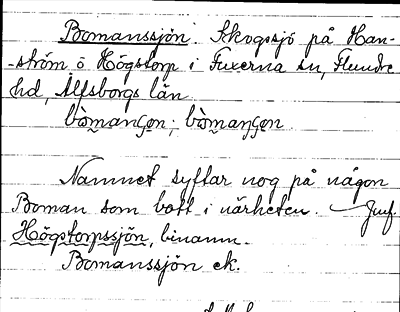 Bomanssjön. Skogssjö på Han-
-ström ö Högstorp i Fuxerna sn, Flundre
hd, Älfsborgs län.
bòmanʂo̧n; bòmaŋʂo̧n
Namnet syftar nog på någon
Boman som bott i närheten. — Jmf.
Högstorpssjön, binamn.
Bomanssjön ek.